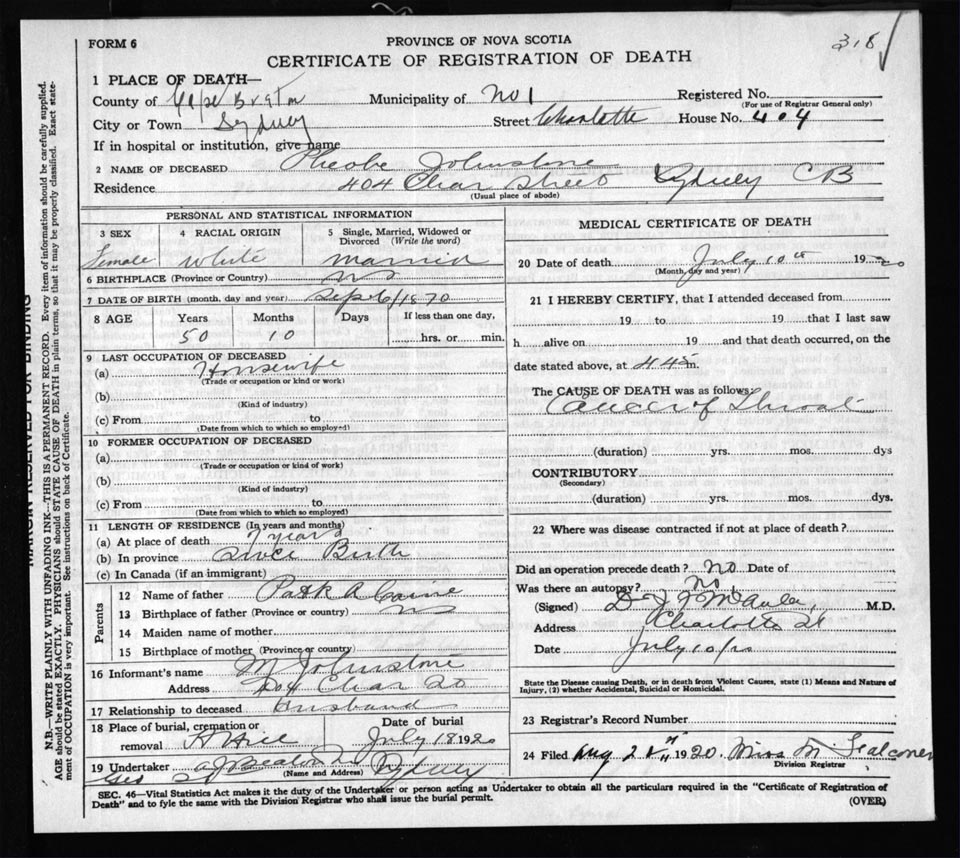 318
FORM 6
PROVINCE OF NOVA SCOTIA
CERTIFICATE OF REGISTRATION OF DEATH
1 PLACE OF DEATH—
County of Cape Breton Municipality of No 1 Registered No.
(For use of Registrar General only)
City or Town Sydney Street Charlotte House No. 404
If in hospital or institution, give name
2 NAME OF DECEASED Pheobe Johnstone
Residence 404 Char Street Sydney CB
(Usual place of abode)
PERSONAL AND STATISTICAL INFORMATION
3 SEX 4 RACIAL ORIGIN 5 Single, Married, Widowed or Divorced (Write the word)
Female White Married
6 BIRTHPLACE (Province or Country) NS
7 DATE OF BIRTH (month, day and year) Sep 6/1870
8 AGE Years Months Days If less than one day,
50 10 hrs. or min.
9 LAST OCCUPATION OF DECEASED
(a) Housewife
(Trade or occupation or kind or work)
(b)
(Kind of industry)
(c) From to
(Date from which to which so employed)
10 FORMER OCCUPATION OF DECEASED
(a)
(Trade or occupation or kind of work)
(b)
(Kind of industry)
(c) From to
(Date from which to which so employed)
11 LENGTH OF RESIDENCE (In years and months)
(a) At place of death 7 years
(b) In province Since Birth
(c) In Canada (if an immigrant)
Parents
12 Name of father Patk A
13 Birthplace of father (Province or country) NS
14 Maiden name of mother
15 Birthplace of mother (Province or country)
16 Informant's name M Johnstone
Address 404 Char
17 Relationship to deceased Husband
18 Place of burial, cremation or removal Date of burial
July 18 1920
19 Undertaker A J Beaton
(Name and Address)
Geo St Sydney
MEDICAL CERTIFICATE OF DEATH
20 Date of death July 10th 1920
(Month, day and year)
21 I HEREBY CERTIFY, that I attended deceased from
19 to 19 that I last saw
h alive on 19 and that death occurred, on the
date stated above, at 4.45 m.
The CAUSE OF DEATH was as follows:
Cancer of Throat
(duration) yrs. mos. dys
CONTRIBUTORY
(Secondary)
(duration) yrs. mos. dys.
22 Where was disease contracted if not at place of death?
Did an operation precede death? No Date of
Was there an autopsy? No
(Signed) D J McAula M.D.
Address Charlotte St
Date July 10/20
State the Disease causing Death, or in death from Violent Causes, state (1) Means and Nature of
Injury, (2) whether Accidental, Suicidal or Homicidal.
23 Registrar's Record Number
24 Filed Aug 1920 Miss M Falconer
Division Registrar
SEC. 46—Vital Statistics Act makes it the duty of the Undertaker or person acting as Undertaker to obtain all the particulars required in the "Certificate of Registration of
Death" and to fyle the same with the Division Registrar who shall issue the burial permit. (OVER)
MARGIN RESERVED FOR BINDING
N.B.—WRITE PLAINLY WITH UNFADING INK—THIS IS A PERMANENT RECORD. Every item of information should be carefully supplied.
AGE should be stated EXACTLY. PHYSICIANS should STATE CAUSE OF DEATH in plain terms, so that it may be properly classified. Exact statement
of OCCUPATION is very important. See instructions on back of Certificate.